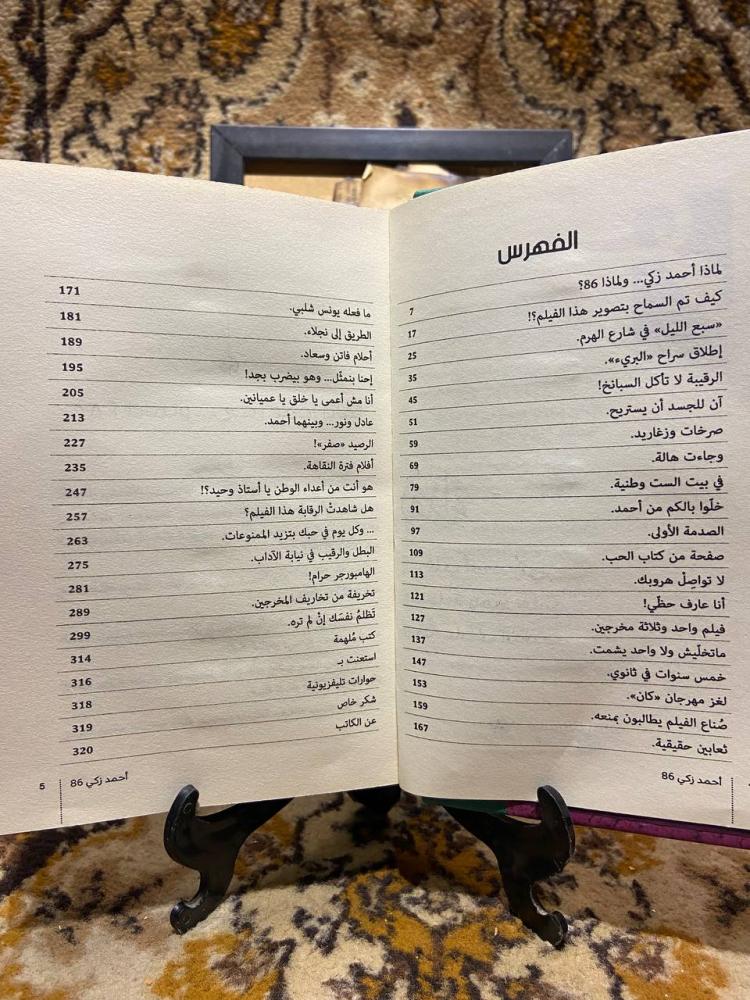 الفهرس
لماذا أحمد زكي... ولماذا 86؟ 7
كيف تم السماح بتصوير هذا الفيلم؟! 17
«سبع الليل» في شارع الهرم. 25
إطلاق سراح «البريء». 35
الرقيبة لا تأكل السبانخ! 45
آن للجسد أن يستريح. 51
صرخات وزغاريد. 59
وجاءت هالة. 69
في بيت الست وطنية. 79
خلّوا بالكم من أحمد. 91
الصدمة الأولى. 97
صفحة من كتاب الحب. 109
لا تواصِلْ هروبك. 113
أنا عارف حظّي! 121
فيلم واحد وثلاثة مخرجين. 127
ماتخلّيش ولا واحد يشمت. 137
خمس سنوات في ثانوي. 147
لغز مهرجان «كان». 153
صُناع الفيلم يطالبون بمنعه. 159
ثعابين حقيقية. 167
أحمد زكي 86
ما فعله يونس شلبي. 171
الطريق إلى نجلاء. 181
أحلام فاتن وسعاد. 189
إحنا بنمثّل... وهو بيضرب بجد! 195
أنا مش أعمى يا خلق يا عميانين. 205
عادل ونور... وبينهما أحمد. 213
الرصيد «صفر»! 227
أفلام فترة النقاهة. 235
هو أنت من أعداء الوطن يا أستاذ وحيد؟! 247
هل شاهدتْ الرقابة هذا الفيلم؟ 257
... وكل يوم في حبك بتزيد الممنوعات. 263
البطل والرقيب في نيابة الآداب. 275
الهامبورجر حرام! 281
تخريفة من تخاريف المخرجين. 289
تَظلمُ نفسَك إنْ لم تره. 299
كتب مُلهمة 314
استعنت بـ 316
حوارات تليفزيونية 318
شكر خاص 319
عن الكاتب 320
أحمد زكي 86 5